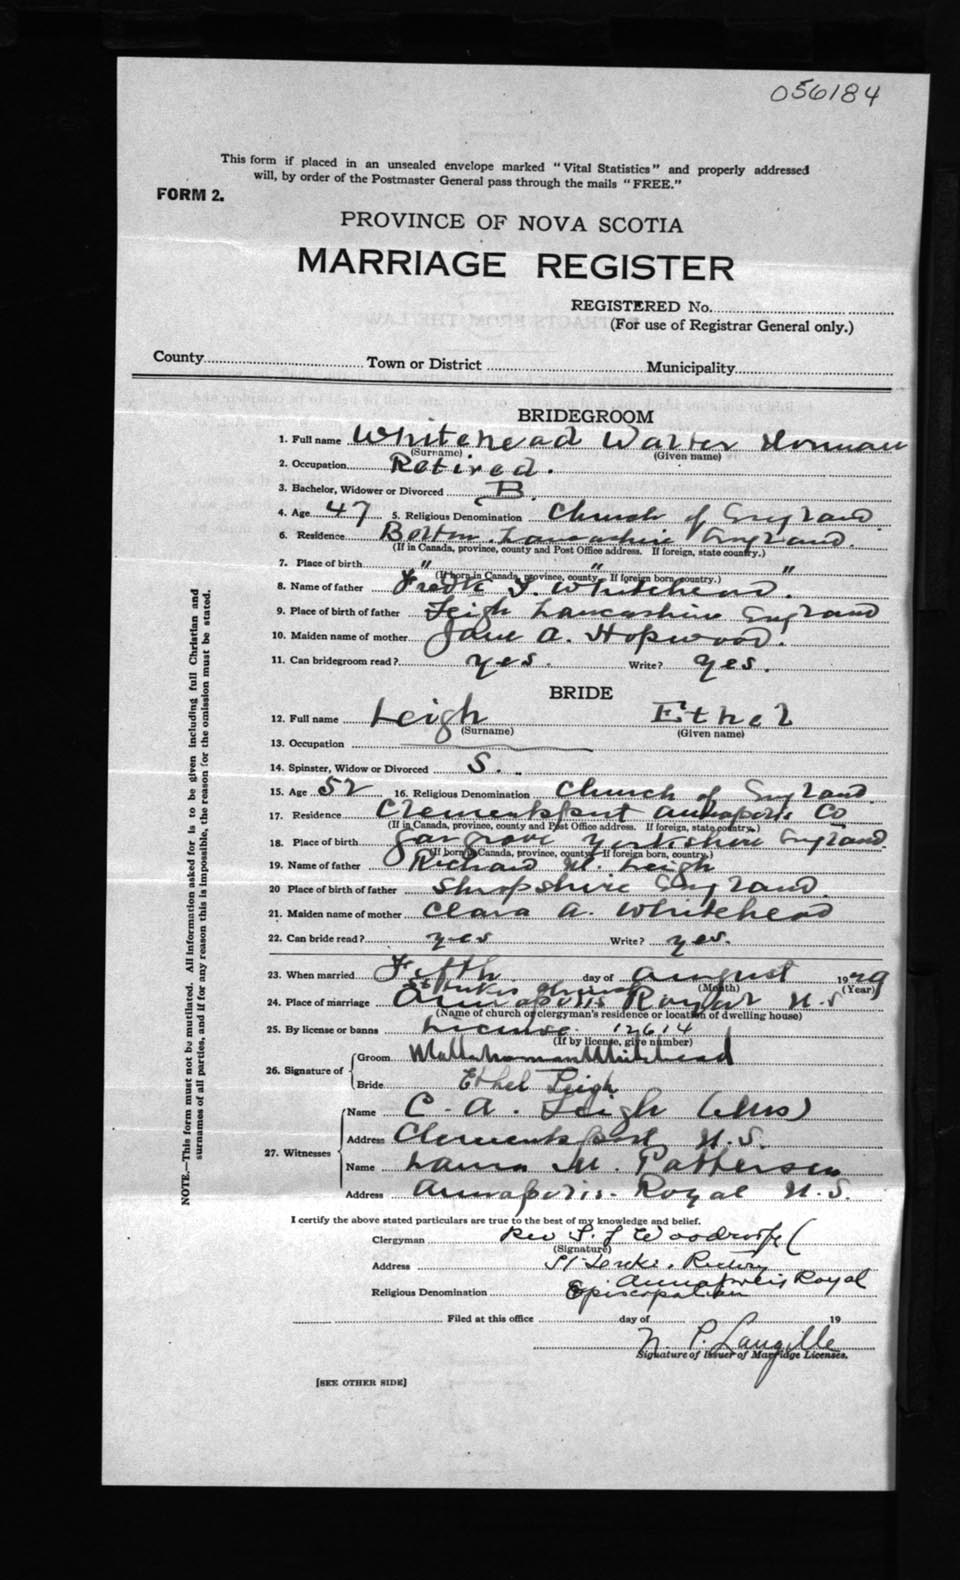 056184
This form if placed in an unsealed envelope marked "Vital Statistics" and properly addressed
will, by order of the Postmaster General pass through the mails "FREE."
FORM 2.
PROVINCE OF NOVA SCOTIA
MARRIAGE REGISTER
REGISTERED No.
(For use of Registrar General only.)
County Town or District Municipality
BRIDEGROOM
1. Full name Whitehead Walter Norman
(Surname) (Given name)
2. Occupation Retired.
3. Bachelor, Widower or Divorced B.
4. Age 47 5. Religious Denomination Church of England
6. Residence Bolton Lancashire England.
(If in Canada, province, county and Post Office address. If foreign, state country.)
7. Place of birth " " "
(If born in Canada, province, county. If foreign born, country.)
8. Name of father Fredk J. Whitehead.
9. Place of birth of father Leigh Lancashire England
10. Maiden name of mother Jane A. Hopwood.
11. Can bridegroom read? yes. Write? yes.
BRIDE
12. Full name Leigh Ethel
(Surname) (Given name)
13. Occupation
14. Spinster, Widow or Divorced S.
15. Age 52 16. Religious Denomination Church of England.
17. Residence Clementsport Annapolis Co
(If in Canada, province, county and Post Office address. If foreign, state country.)
18. Place of birth Gargrave Yorkshire England.
(If born in Canada, province, county. If foreign born, country.)
19. Name of father Richard M. Leigh
20 Place of birth of father Shropshire England
21. Maiden name of mother Clara A. Whitehead
22. Can bride read? yes Write? yes.
23. When married Fifth day of August 1929
(Month) (Year)
St Lukes Church
24. Place of marriage Annapolis Royal N.S
(Name of church or clergyman's residence or location of dwelling house)
25. By license or banns License. 12614
(If by license, give number)
26. Signature of Groom Walter Norman Whitehead
Bride Ethel Leigh
27. Witnesses Name C. A. Leigh (Mrs)
Address Clementsport, N.S.
Name Laura M. Patterson
Address Annapolis Royal N.S.
I certify the above stated particulars are true to the best of my knowledge and belief.
Clergyman Rev
(Signature)
Address St Lukes Rectory
Annapolis Royal
Religious Denomination Episcopalian
Filed at this office day of 19
N. P. Langille
Signature of Issuer of Marriage Licenses.
[SEE OTHER SIDE]
NOTE.—This form must not be mutilated. All information asked for is to be given including full Christian and
surnames of all parties, and if for any reason this is impossible, the reason for the omission must be stated.